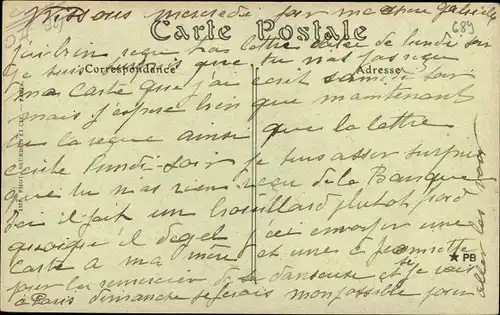 Vissous mercredi soir ma chère Gabrielle
689
Carte Postale
j'ai bien reçu ta lettre de lundi soir
Correspondance
je suis que tu n'as pas reçu
Adresse
ma carte que j'ai écrit samedi soir
mais j'espère bien que maintenant
tu l'a reçue ainsi que la lettre
écrite lundi soir je suis assez surpris
que tu n'as rien reçu de la Banque
ici il fait un brouillard plutôt froid
quoiqu'il dégel envoyer une
carte a ma mère et une à Jeannette
pour la remercier de sa danseuse et je vais
à Paris dimanche je ferais mon possible pour
aller les voir
PB